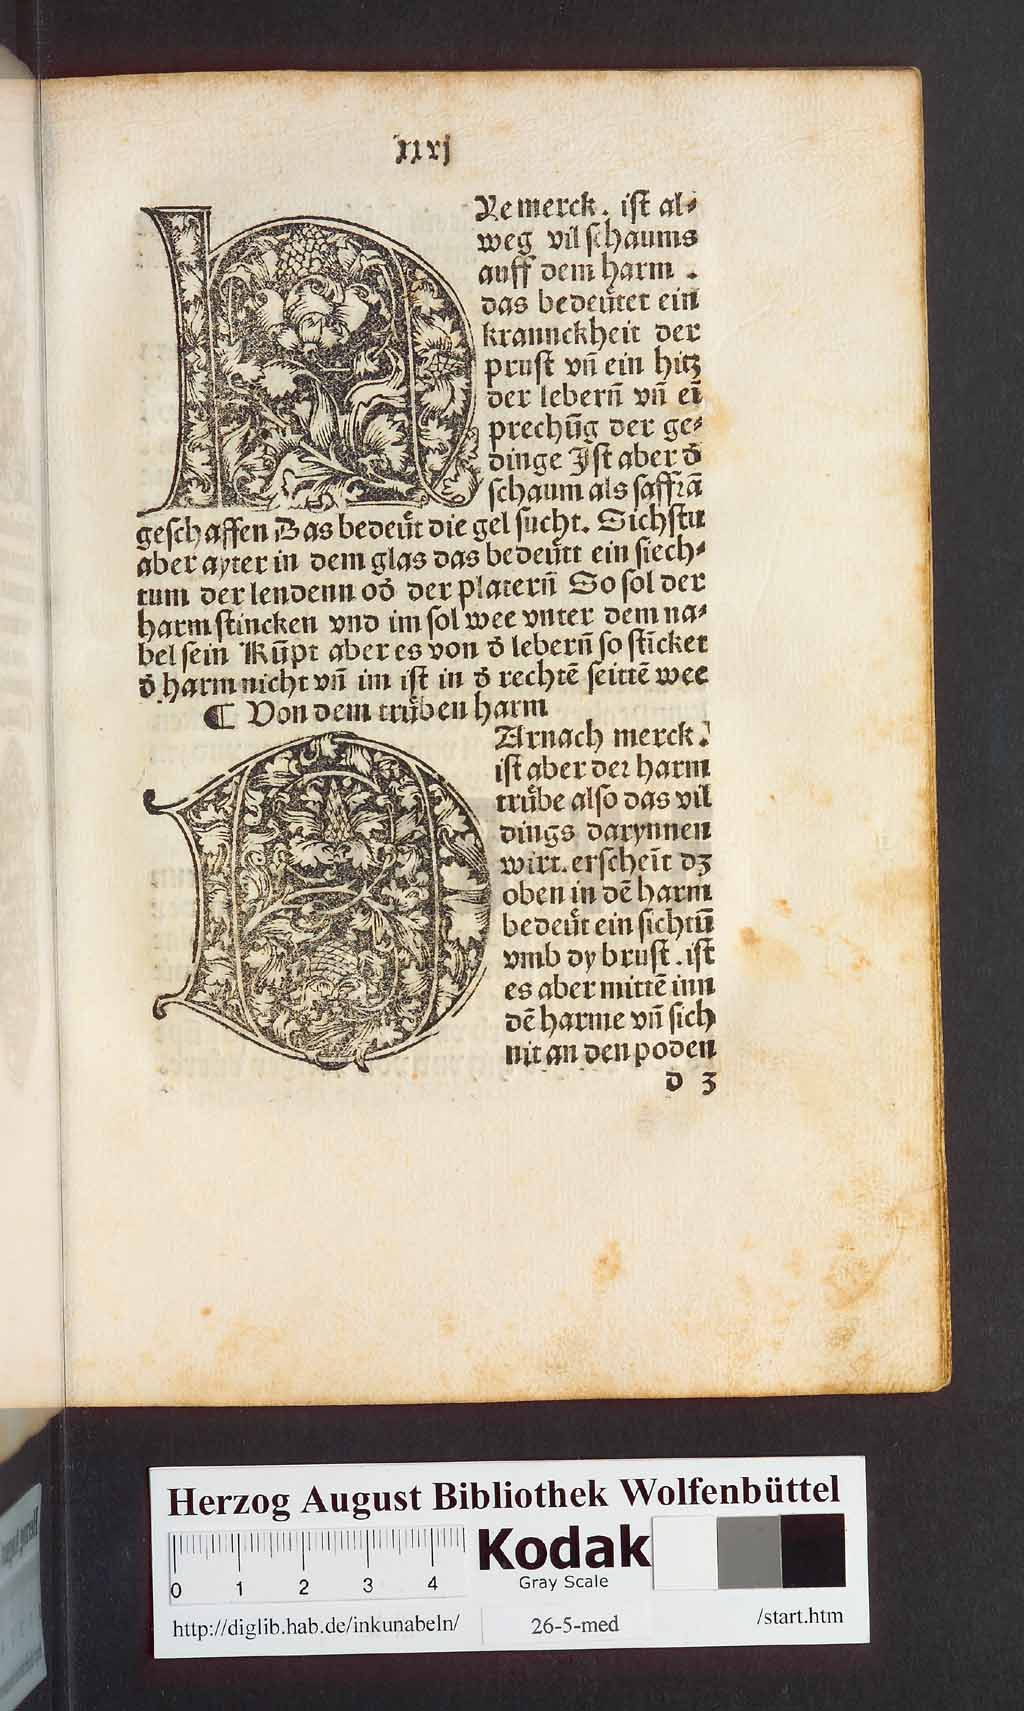 xxxj
NVe merck. ist al⸗
weg vil schaums
auff dem harm .
das bedeůtet ein
kranckheit der
prust vn̄ ein hitz
der lebern̄ vn̄ eī
prechūg der ge⸗
dinge Ist aber d̄
schaum als saffrā
geschaffen Das bedeůt die gel sucht. Sichstu
aber ayter in dem glas das bedeůtt ein siech⸗
tum der lendenn od̄ der platern̄ So sol der
harm stincken vnd im sol wee vnter dem na⸗
bel sein Kūpt aber es von d̄ lebern̄ so stīcket
d̄ harm nicht vn̄ im ist in d̄ rechtē seittē wee
¶ Von dem trůben harm
DArnach merck.
ist aber der harm
trůbe also das vil
dings darynnen
wirt. erscheīt dz
oben in dē harm
bedeůt ein sichtū
vmb dy brust . ist
es aber mittē inn
dē harme vn̄ sich
nit an den poden
d 3
Herzog August Bibliothek Wolfenbüttel
0 1 2 3 4
Kodak
Gray Scale
http://diglib.hab.de/inkunabeln/ 26-5-med /start.htm